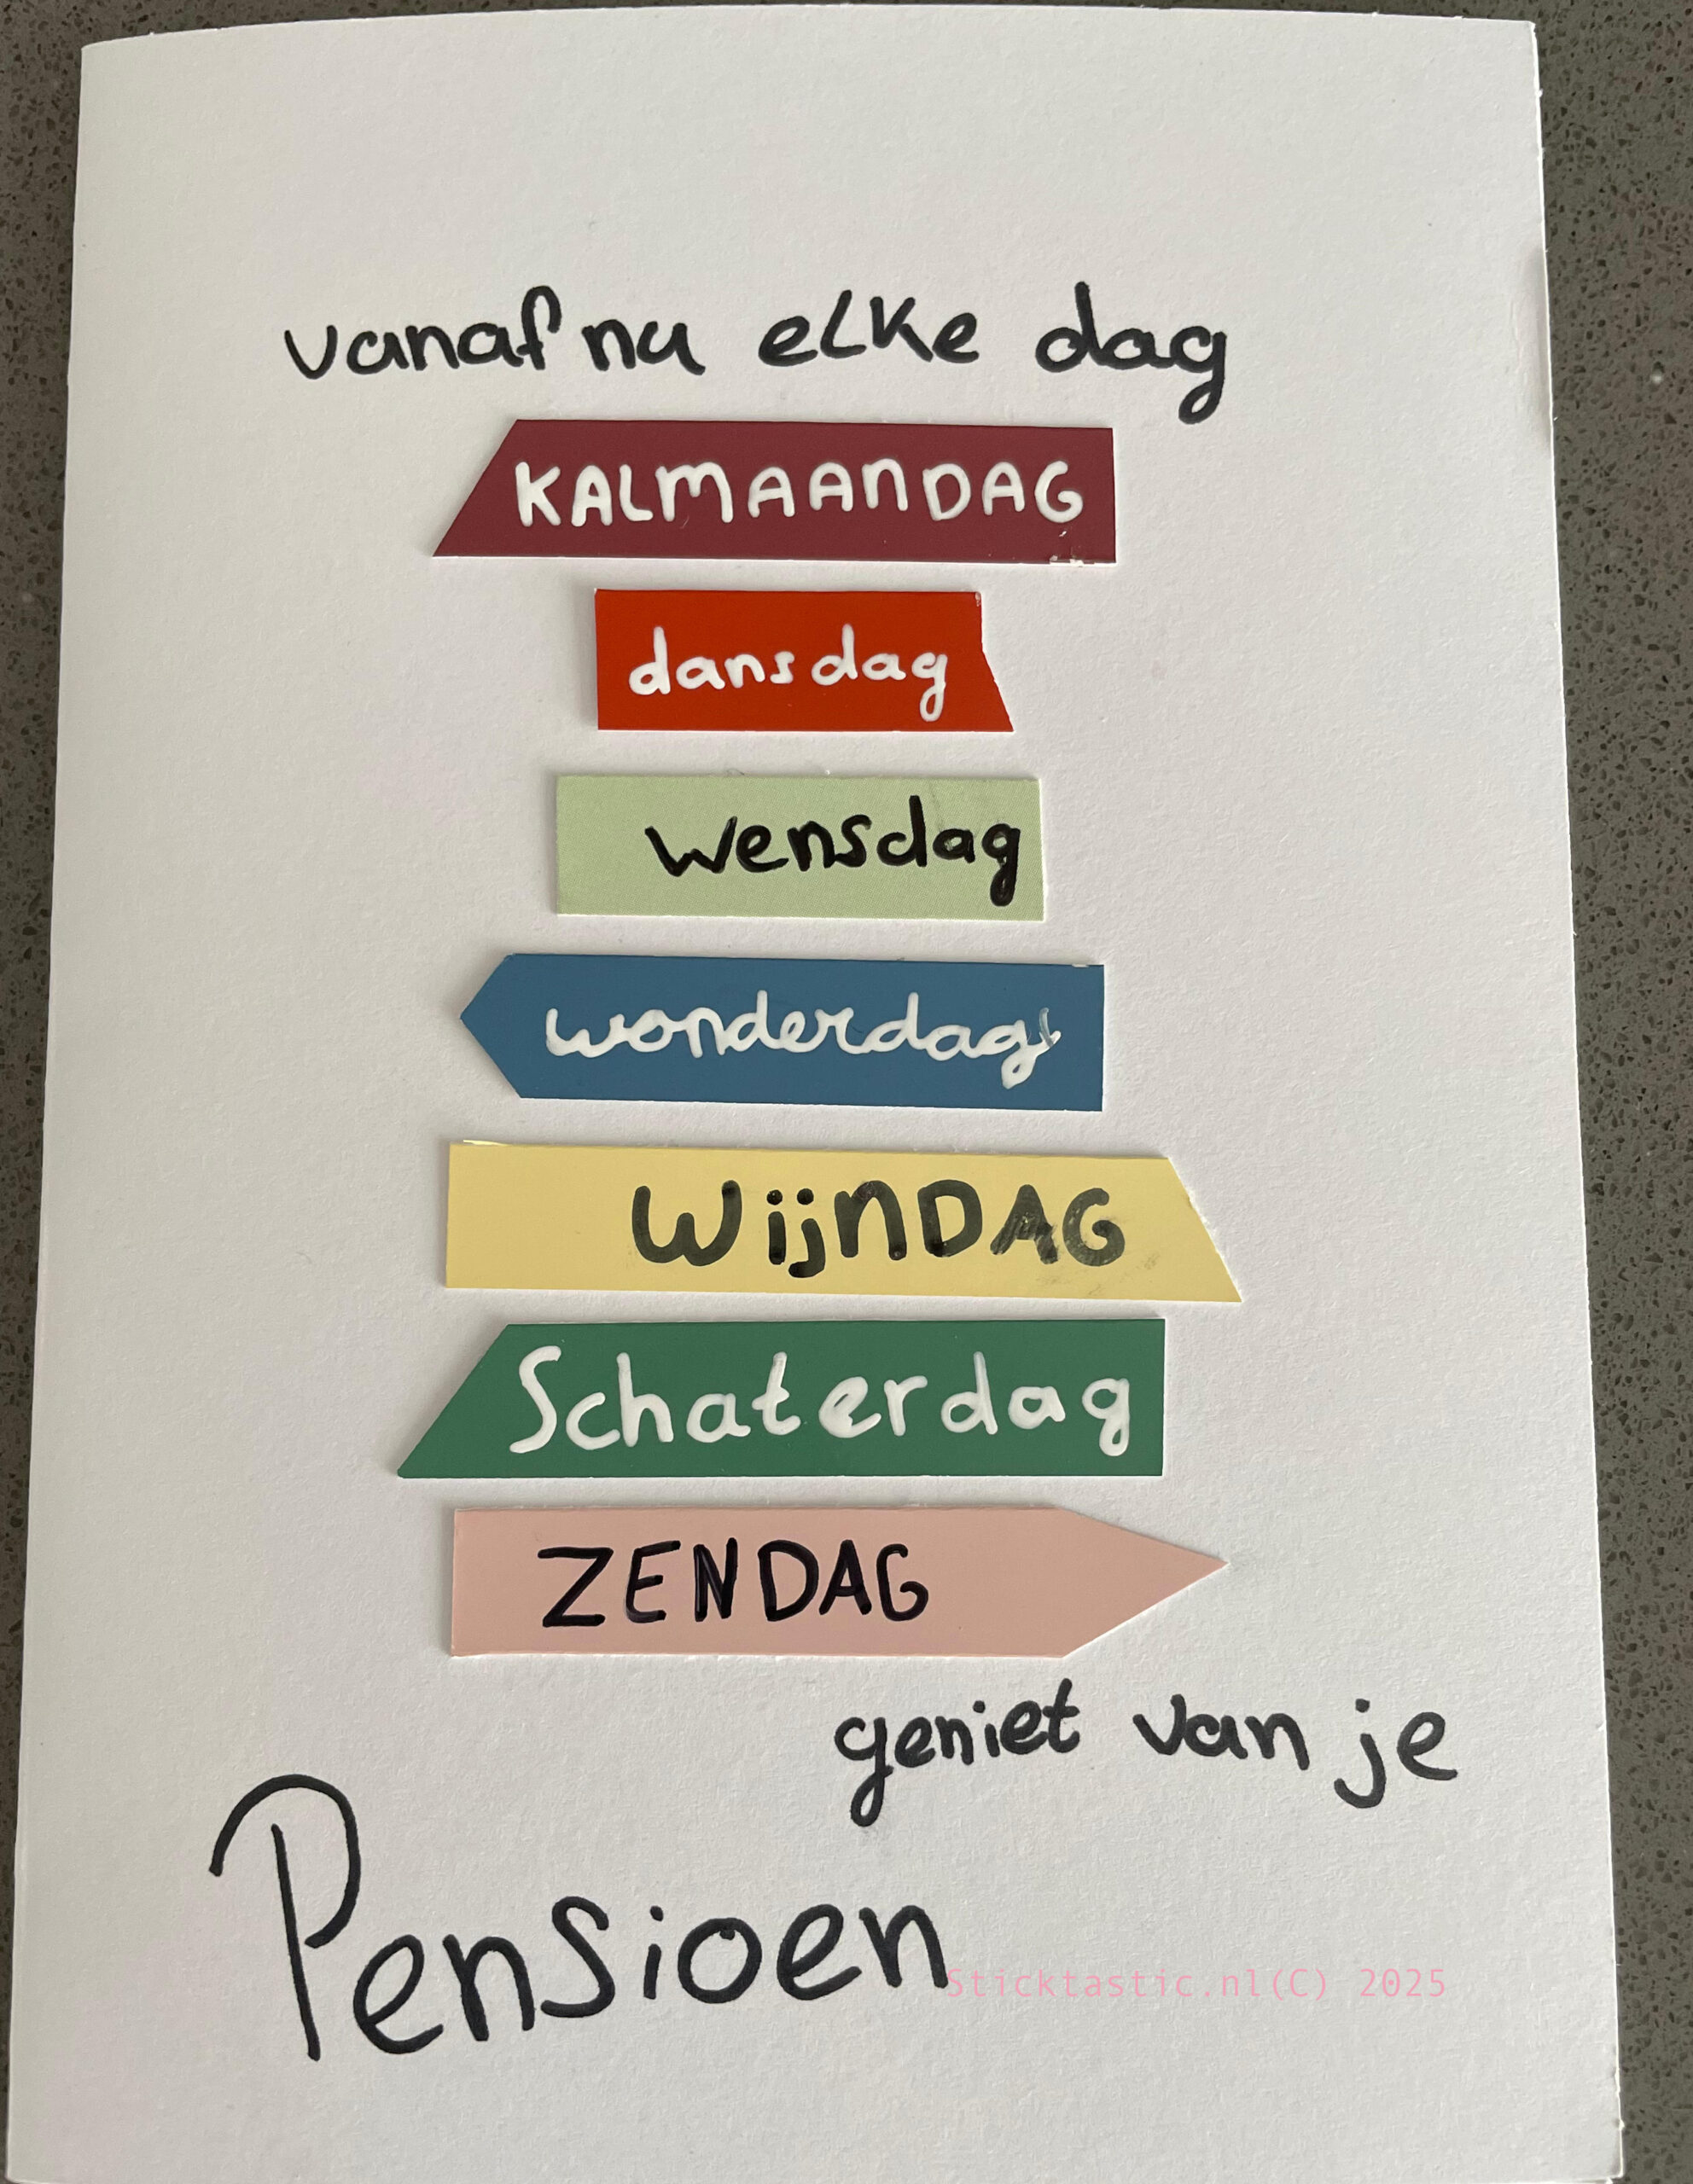 vanaf nu elke dag
KALMAANDAG
dansdag
wensdag
wonderdag
WijnDAG
Schaterdag
ZENDAG
geniet van je
Pensioen
Sticktastic.nl(C) 2025